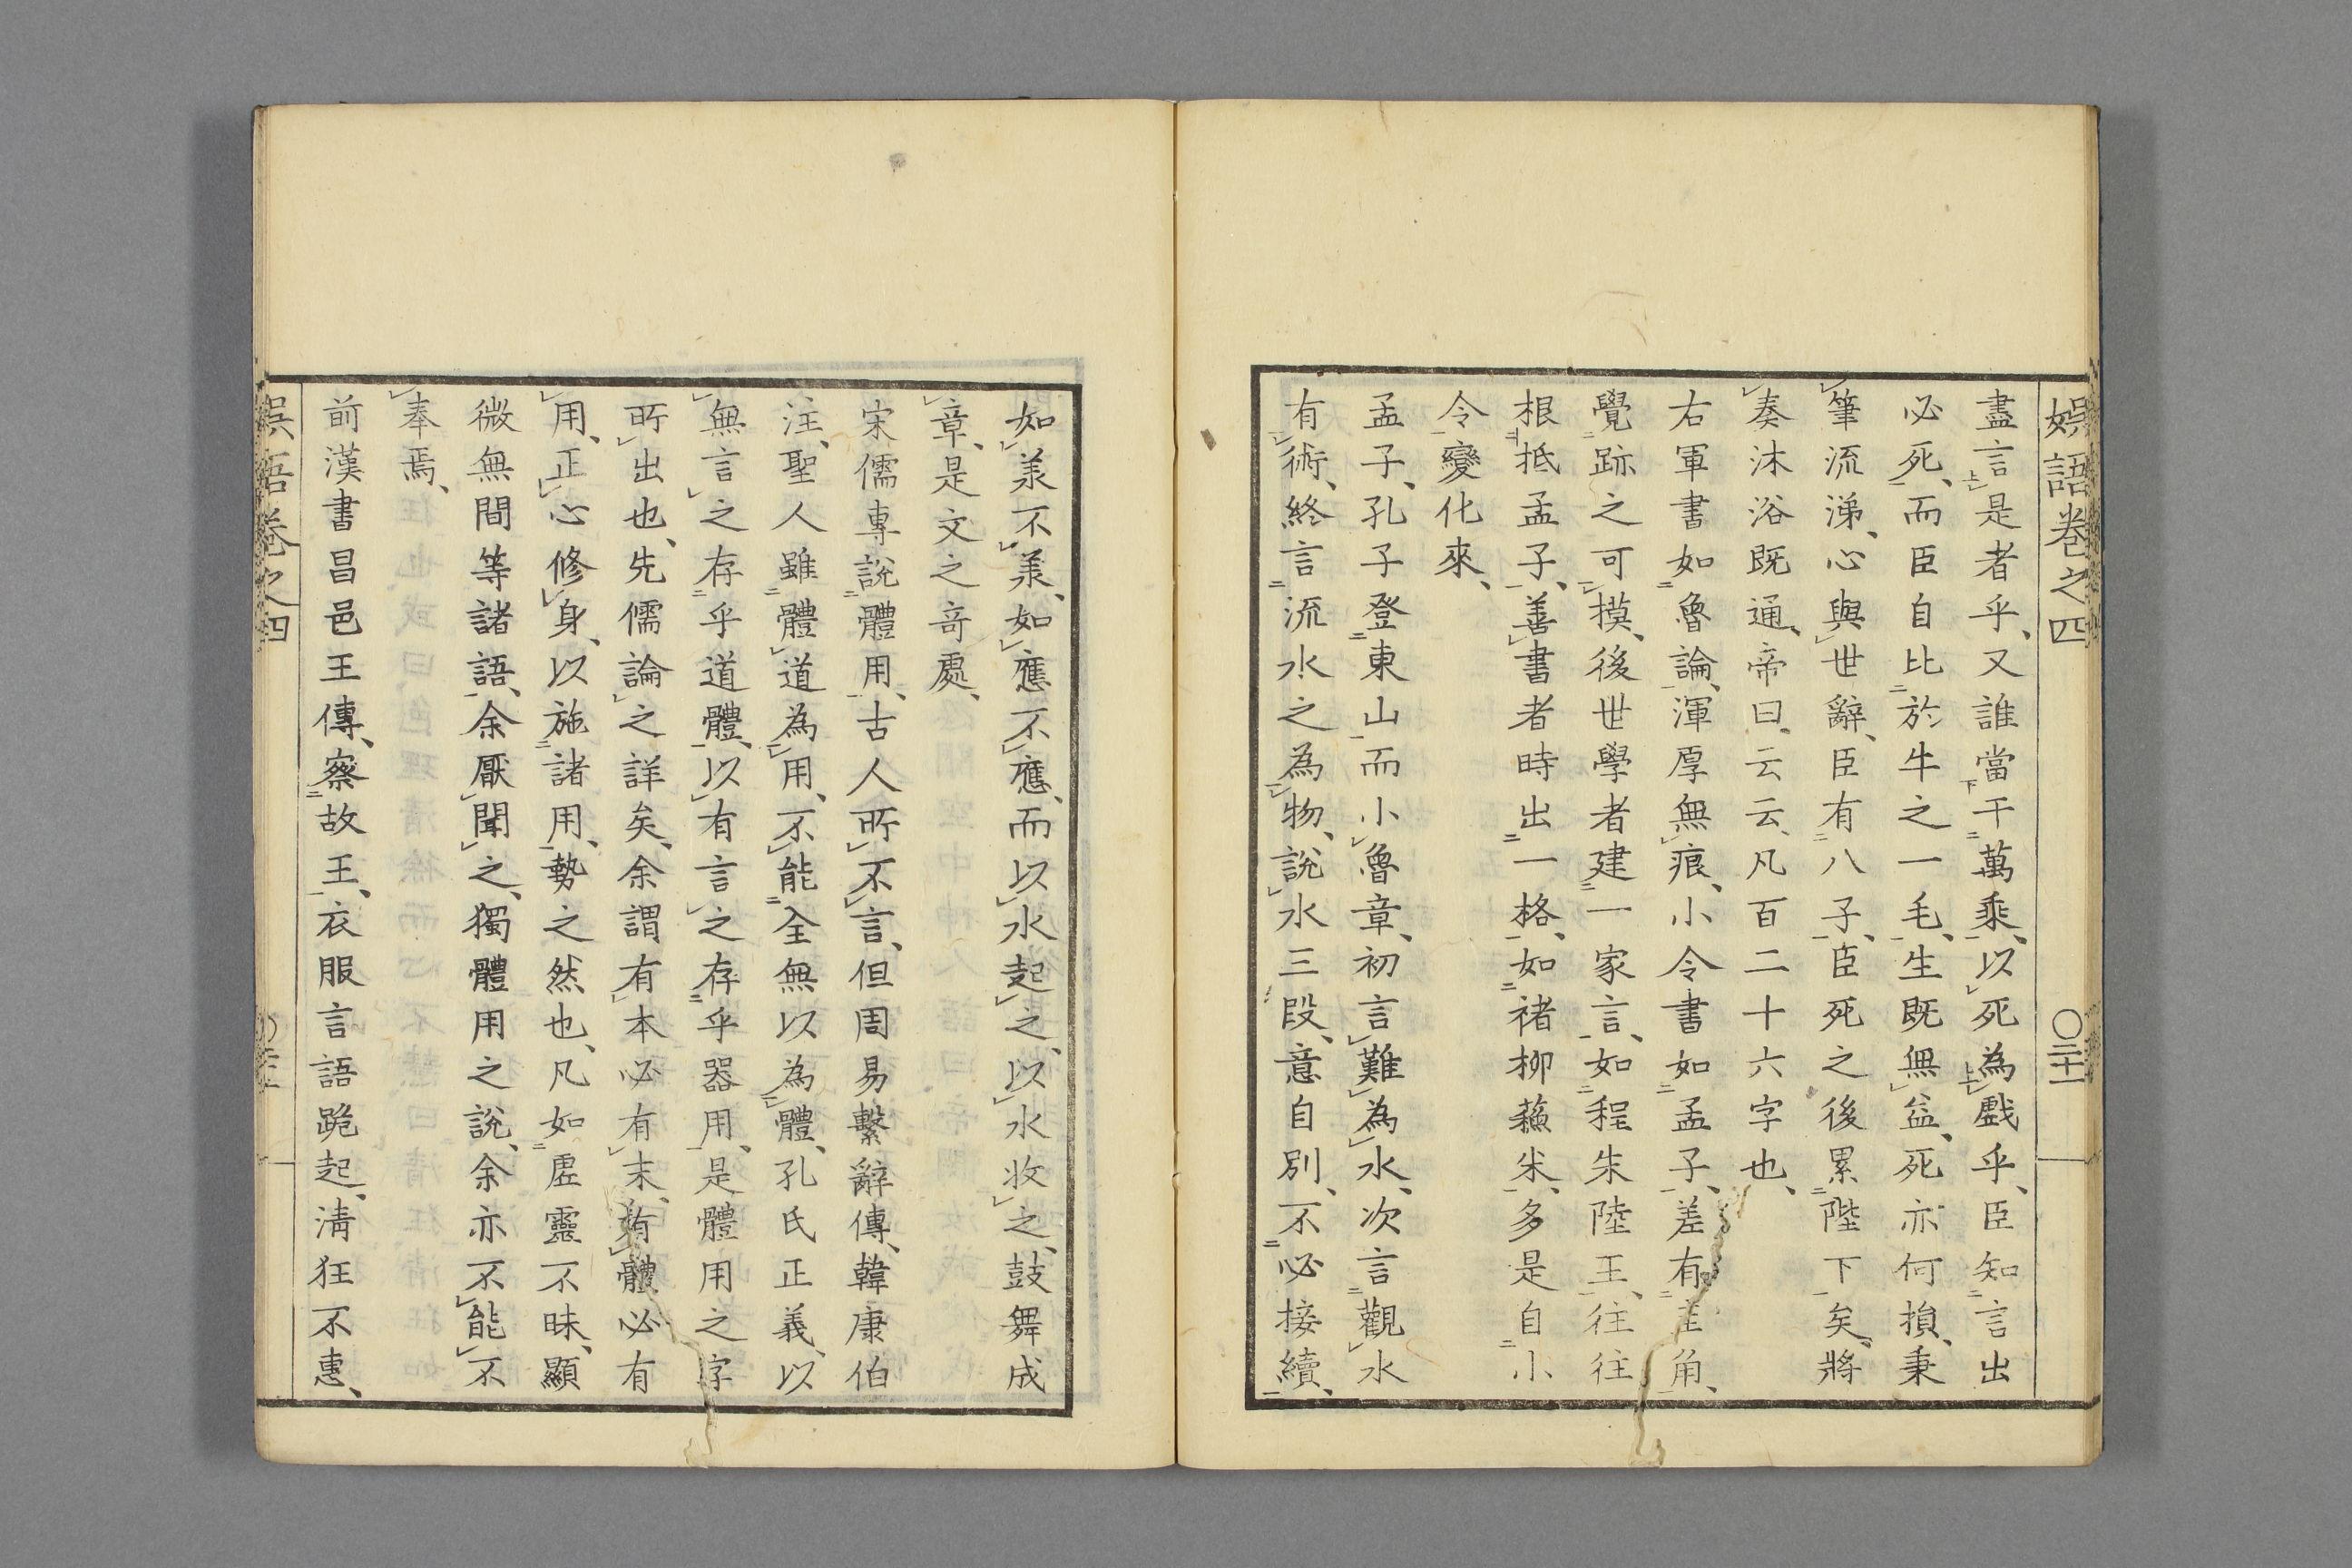 娯語卷之四
〇二十一
盡言是者乎、又誰當干萬乘、以死為戲乎、臣知言出
必死、而臣自比於牛之一毛、生既無益、死亦何損、秉
筆流涕、心與世辭、臣有八子、臣死之後累陛下矣、將
奏沐浴既通、帝曰、云云、凡百二十六字也、
右軍書如魯論、渾厚無痕、小令書如孟子、差有圭角、
覺跡之可摸、後世學者建一家言、如程朱陸王、往往
根抵孟子、善書者時出一格、如褚柳蘓米、多是自小
令變化來、
孟子、孔子登東山而小魯章、初言難為水、次言觀水
有術、終言流水之為物、說水三段、意自別、不必接續、
如羕不羕、如應不應、而以水起之、以水收之、鼓舞成
章、是文之奇處、
宋儒專說體用、古人所不言、但周易繫辭傳、韓康伯
注、聖人雖體道為用、不能全無以為體、孔氏正義、以
無言之存乎道體、以有言之存乎器用、是體用之字
所出也、先儒論之詳矣、余謂有本必有末、有體必有
用、正心修身、以施諸用、勢之然也、凡如虛靈不昧、顯
微無間等諸語、余厭聞之、獨體用之說、余亦不能不
奉焉、
前漢書昌邑王傳、察故王、衣服言語跪起、清狂不惠、
娯語卷之四